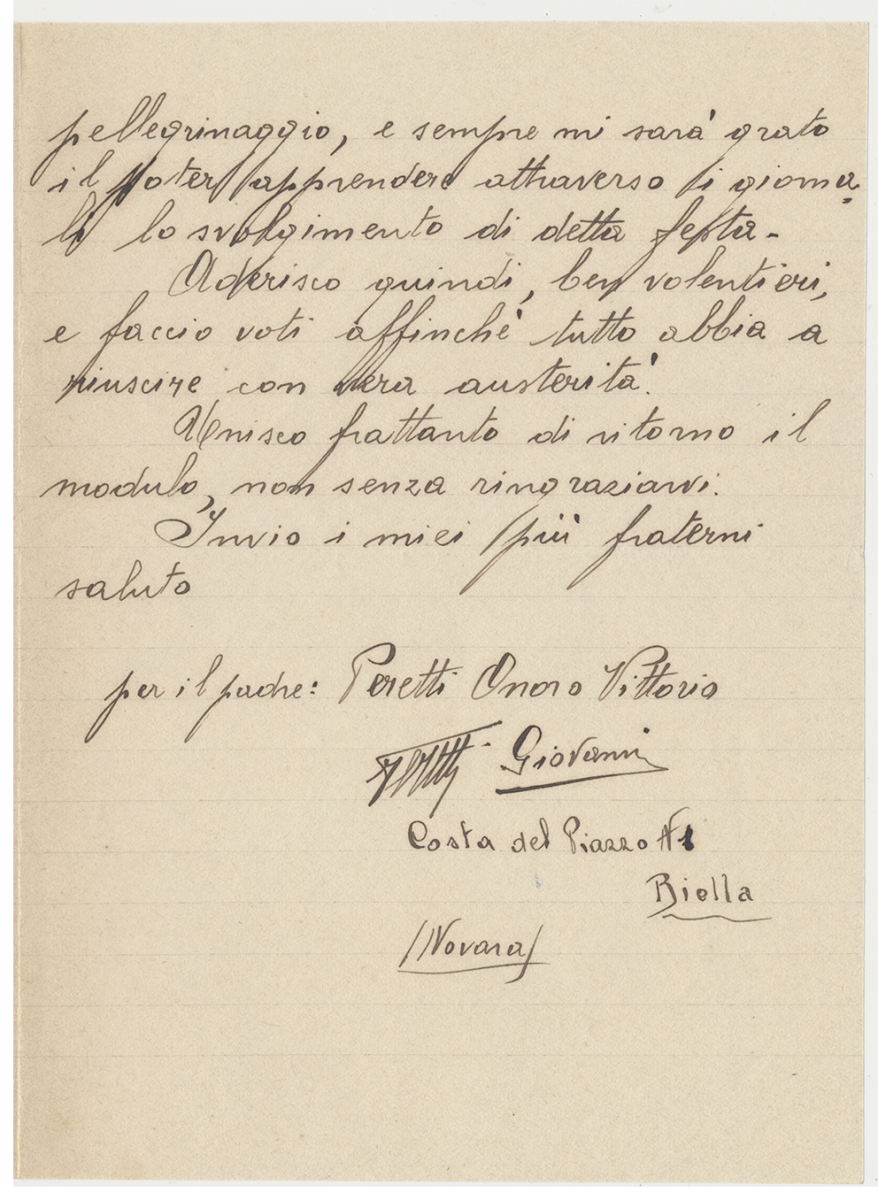 pellegrinaggio, e sempre mi sarà grato
il poter apprendere attraverso i giorna=
li lo svolgimento di detta festa-
Aderisco quindi, ben volentieri,
e faccio voti affinchè tutto abbia a
riuscire con vera austerità.
Unisco frattanto di ritorno il
modulo, non senza ringraziarvi.
Invio i miei più fraterni
saluto
per il padre: Peretti Onoro Vittorio
Giovanni
Costa del Piazzo N 1
Biella
(Novara)